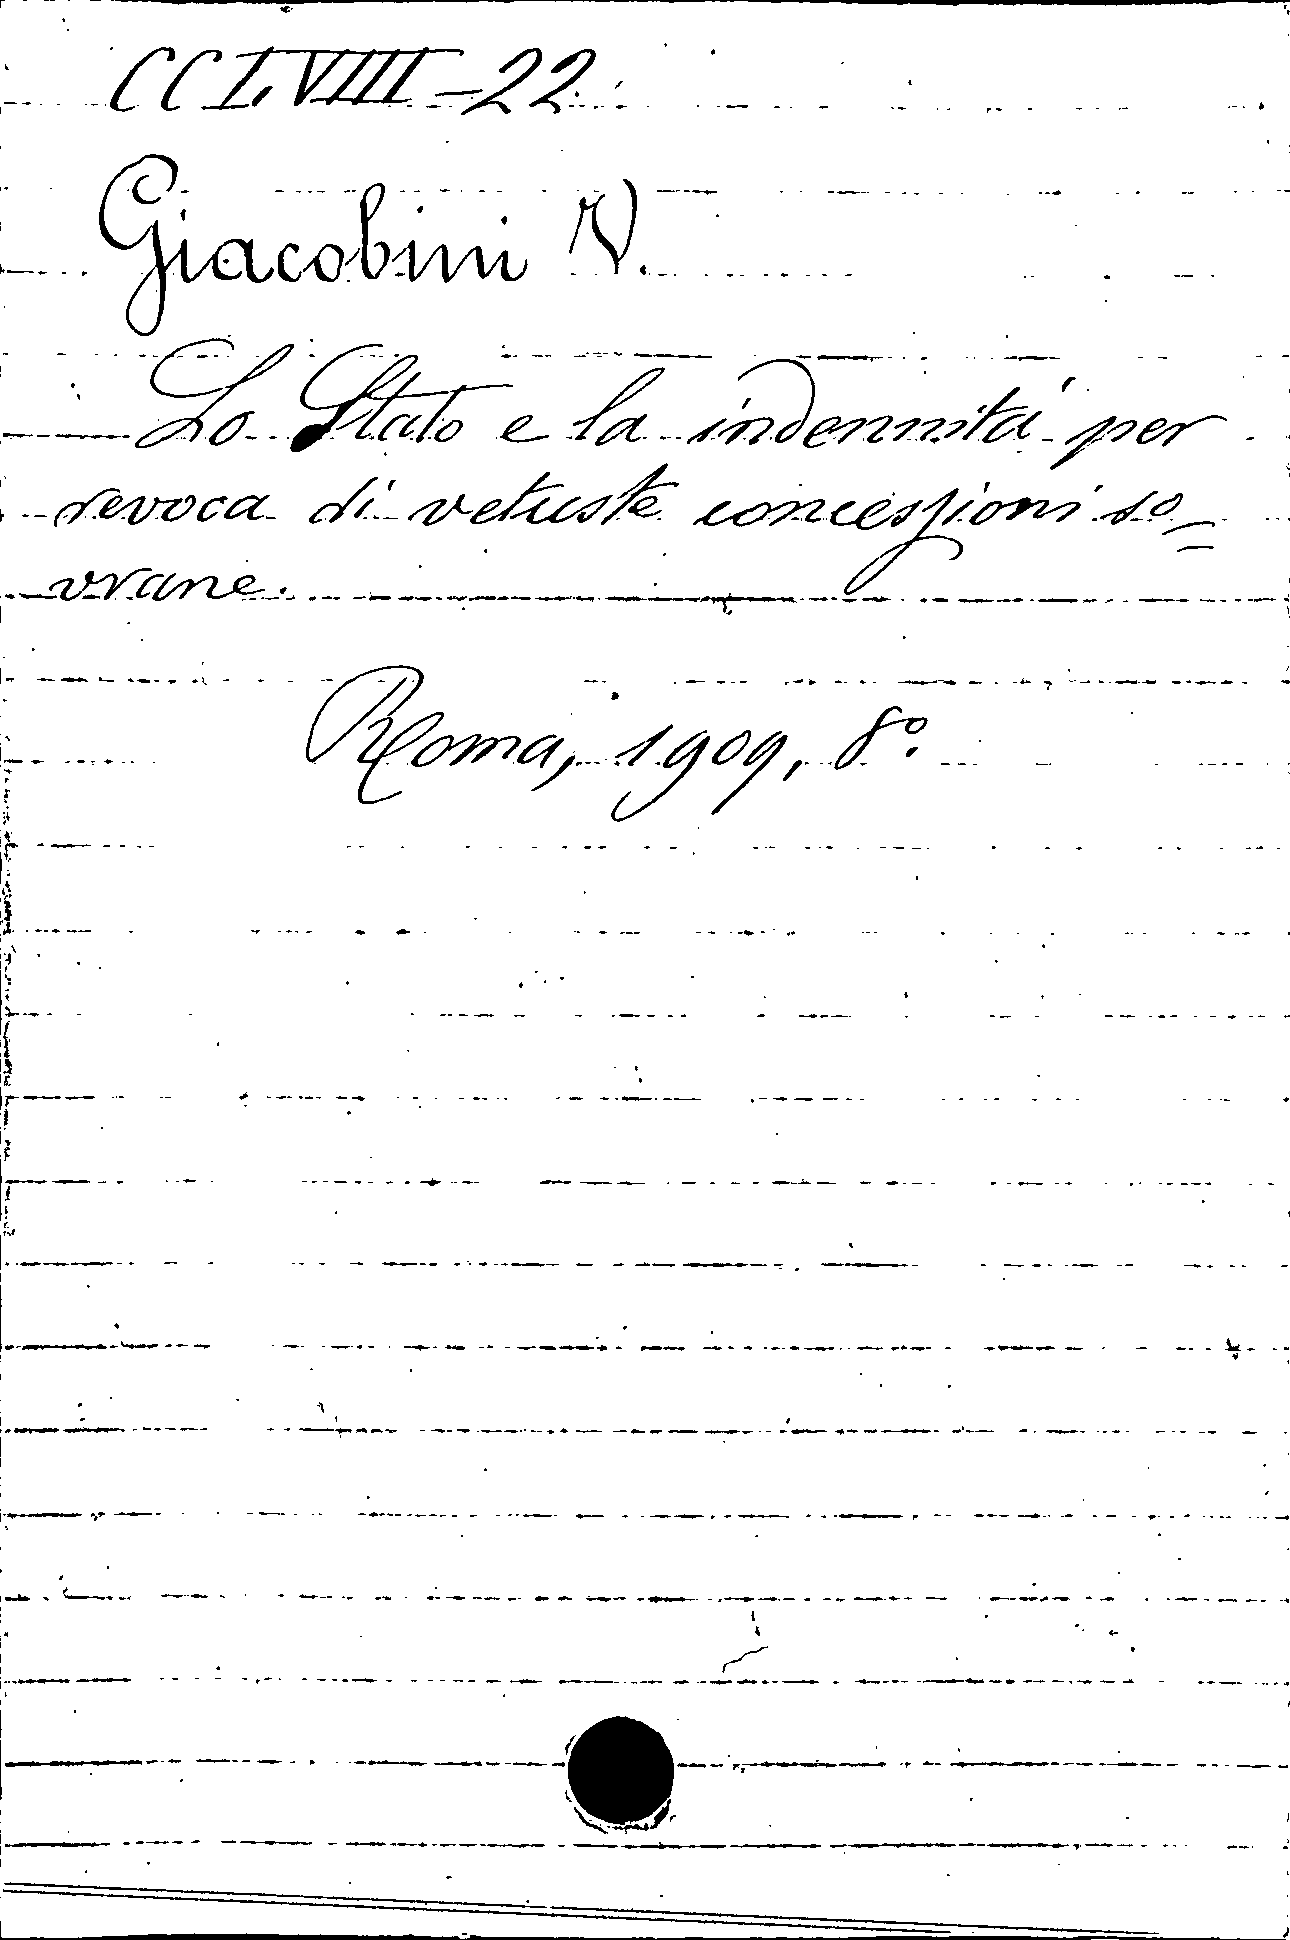 CCLVIII-22.
Giacobini V.
Lo Stato e la indennità per
revoca di vetuste concessioni so=
vrane.
Roma, 1909, 8º.